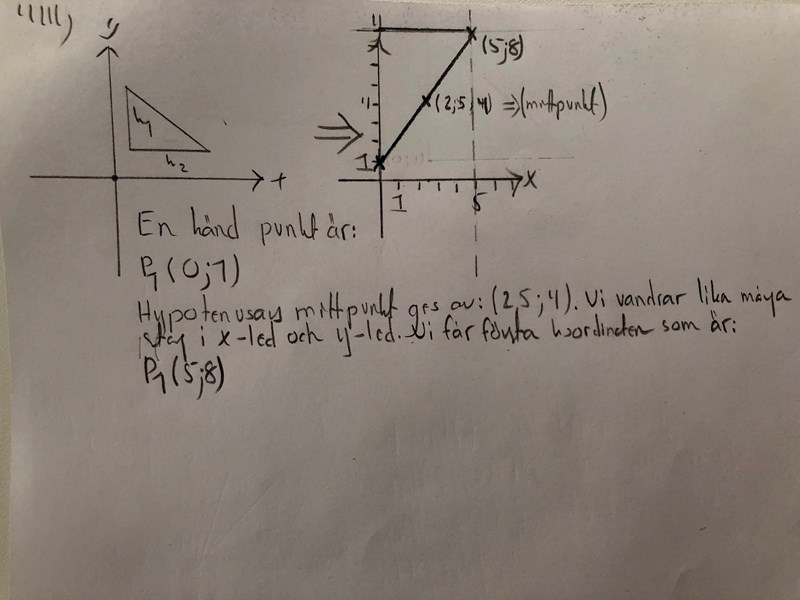 y
h₁
h₂
(5;8)
4
(2,5;4) => (mittpunkt)
1
x
1
5
En känd punkt är:
P₁(0;1)
Hypotenusans mittpunkt ges av: (2,5;4). Vi vandrar lika många
steg i x-led och y-led. Vi får första koordinaten som är:
P₁(5;8)